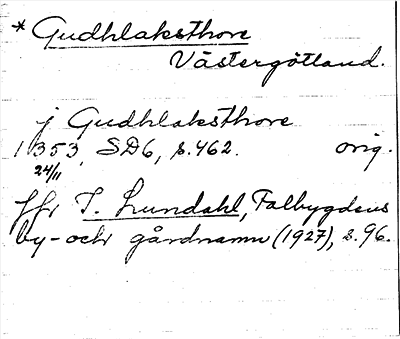 * Gudhlaksthore
Västergötland.
j Gudhlaksthore
1353, SD6, s.462. orig.
24/11
jfr I. Lundahl, Falbygdens
by- och gårdnamn (1927), s.96.